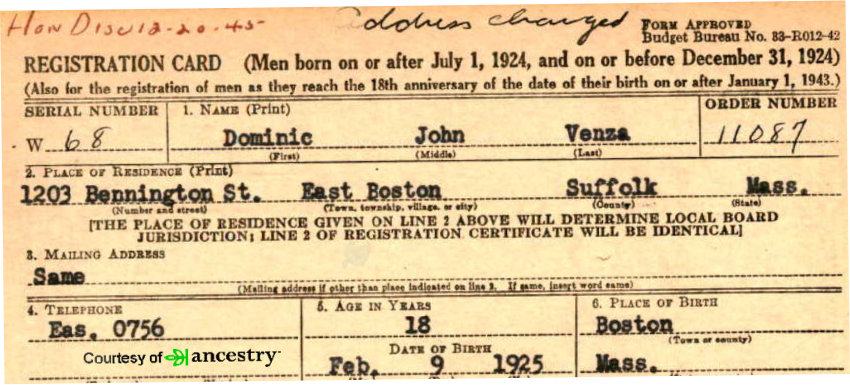 Hon Disc 12-20-45 address changed
FORM APPROVED
Budget Bureau No. 33-R012-42
REGISTRATION CARD (Men born on or after July 1, 1924, and on or before December 31, 1924)
(Also for the registration of men as they reach the 18th anniversary of the date of their birth on or after January 1, 1943.)
SERIAL NUMBER 1. NAME (Print) ORDER NUMBER
W 68 Dominic John Venza 11087
(First) (Middle) (Last)
2. PLACE OF RESIDENCE (Print)
1203 Bennington St. East Boston Suffolk Mass.
(Number and street) (Town, township, village, or city) (County) (State)
[THE PLACE OF RESIDENCE GIVEN ON LINE 2 ABOVE WILL DETERMINE LOCAL BOARD
JURISDICTION; LINE 2 OF REGISTRATION CERTIFICATE WILL BE IDENTICAL]
3. MAILING ADDRESS
Same
(Mailing address if other than place indicated on line 2. If same, insert word same)
4. TELEPHONE 5. AGE IN YEARS 6. PLACE OF BIRTH
Eas. 0756 18 Boston
(Town or county)
DATE OF BIRTH
Courtesy of ancestry
Feb. 9 1925 Mass.